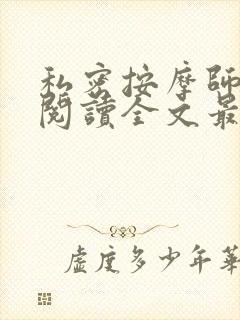 私密按摩師
閱讀全文最
虛度多少年華